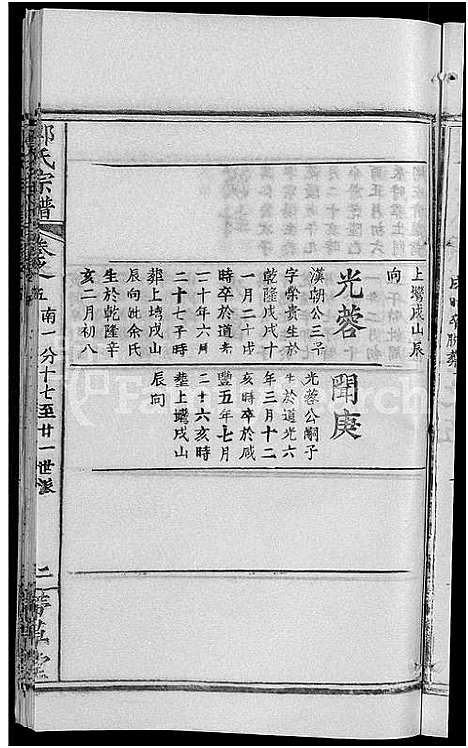 上塆戌山辰
向
光蓉
漢朝公三子
字榮貴生於
乾隆戊戌十
一月二十戌
時卒於道光
二十年六月
二十七子時
葬上塆戌山
辰向妣余氏
生於乾隆辛
亥二月初八
聞庚
光蓉公嗣子
生於道光六
年三月十二
亥時卒於咸
豐五年七月
二十六亥時
葬上塆戌山
辰向
郭氏宗譜
卷之五
南一分十七至廿一世派
二